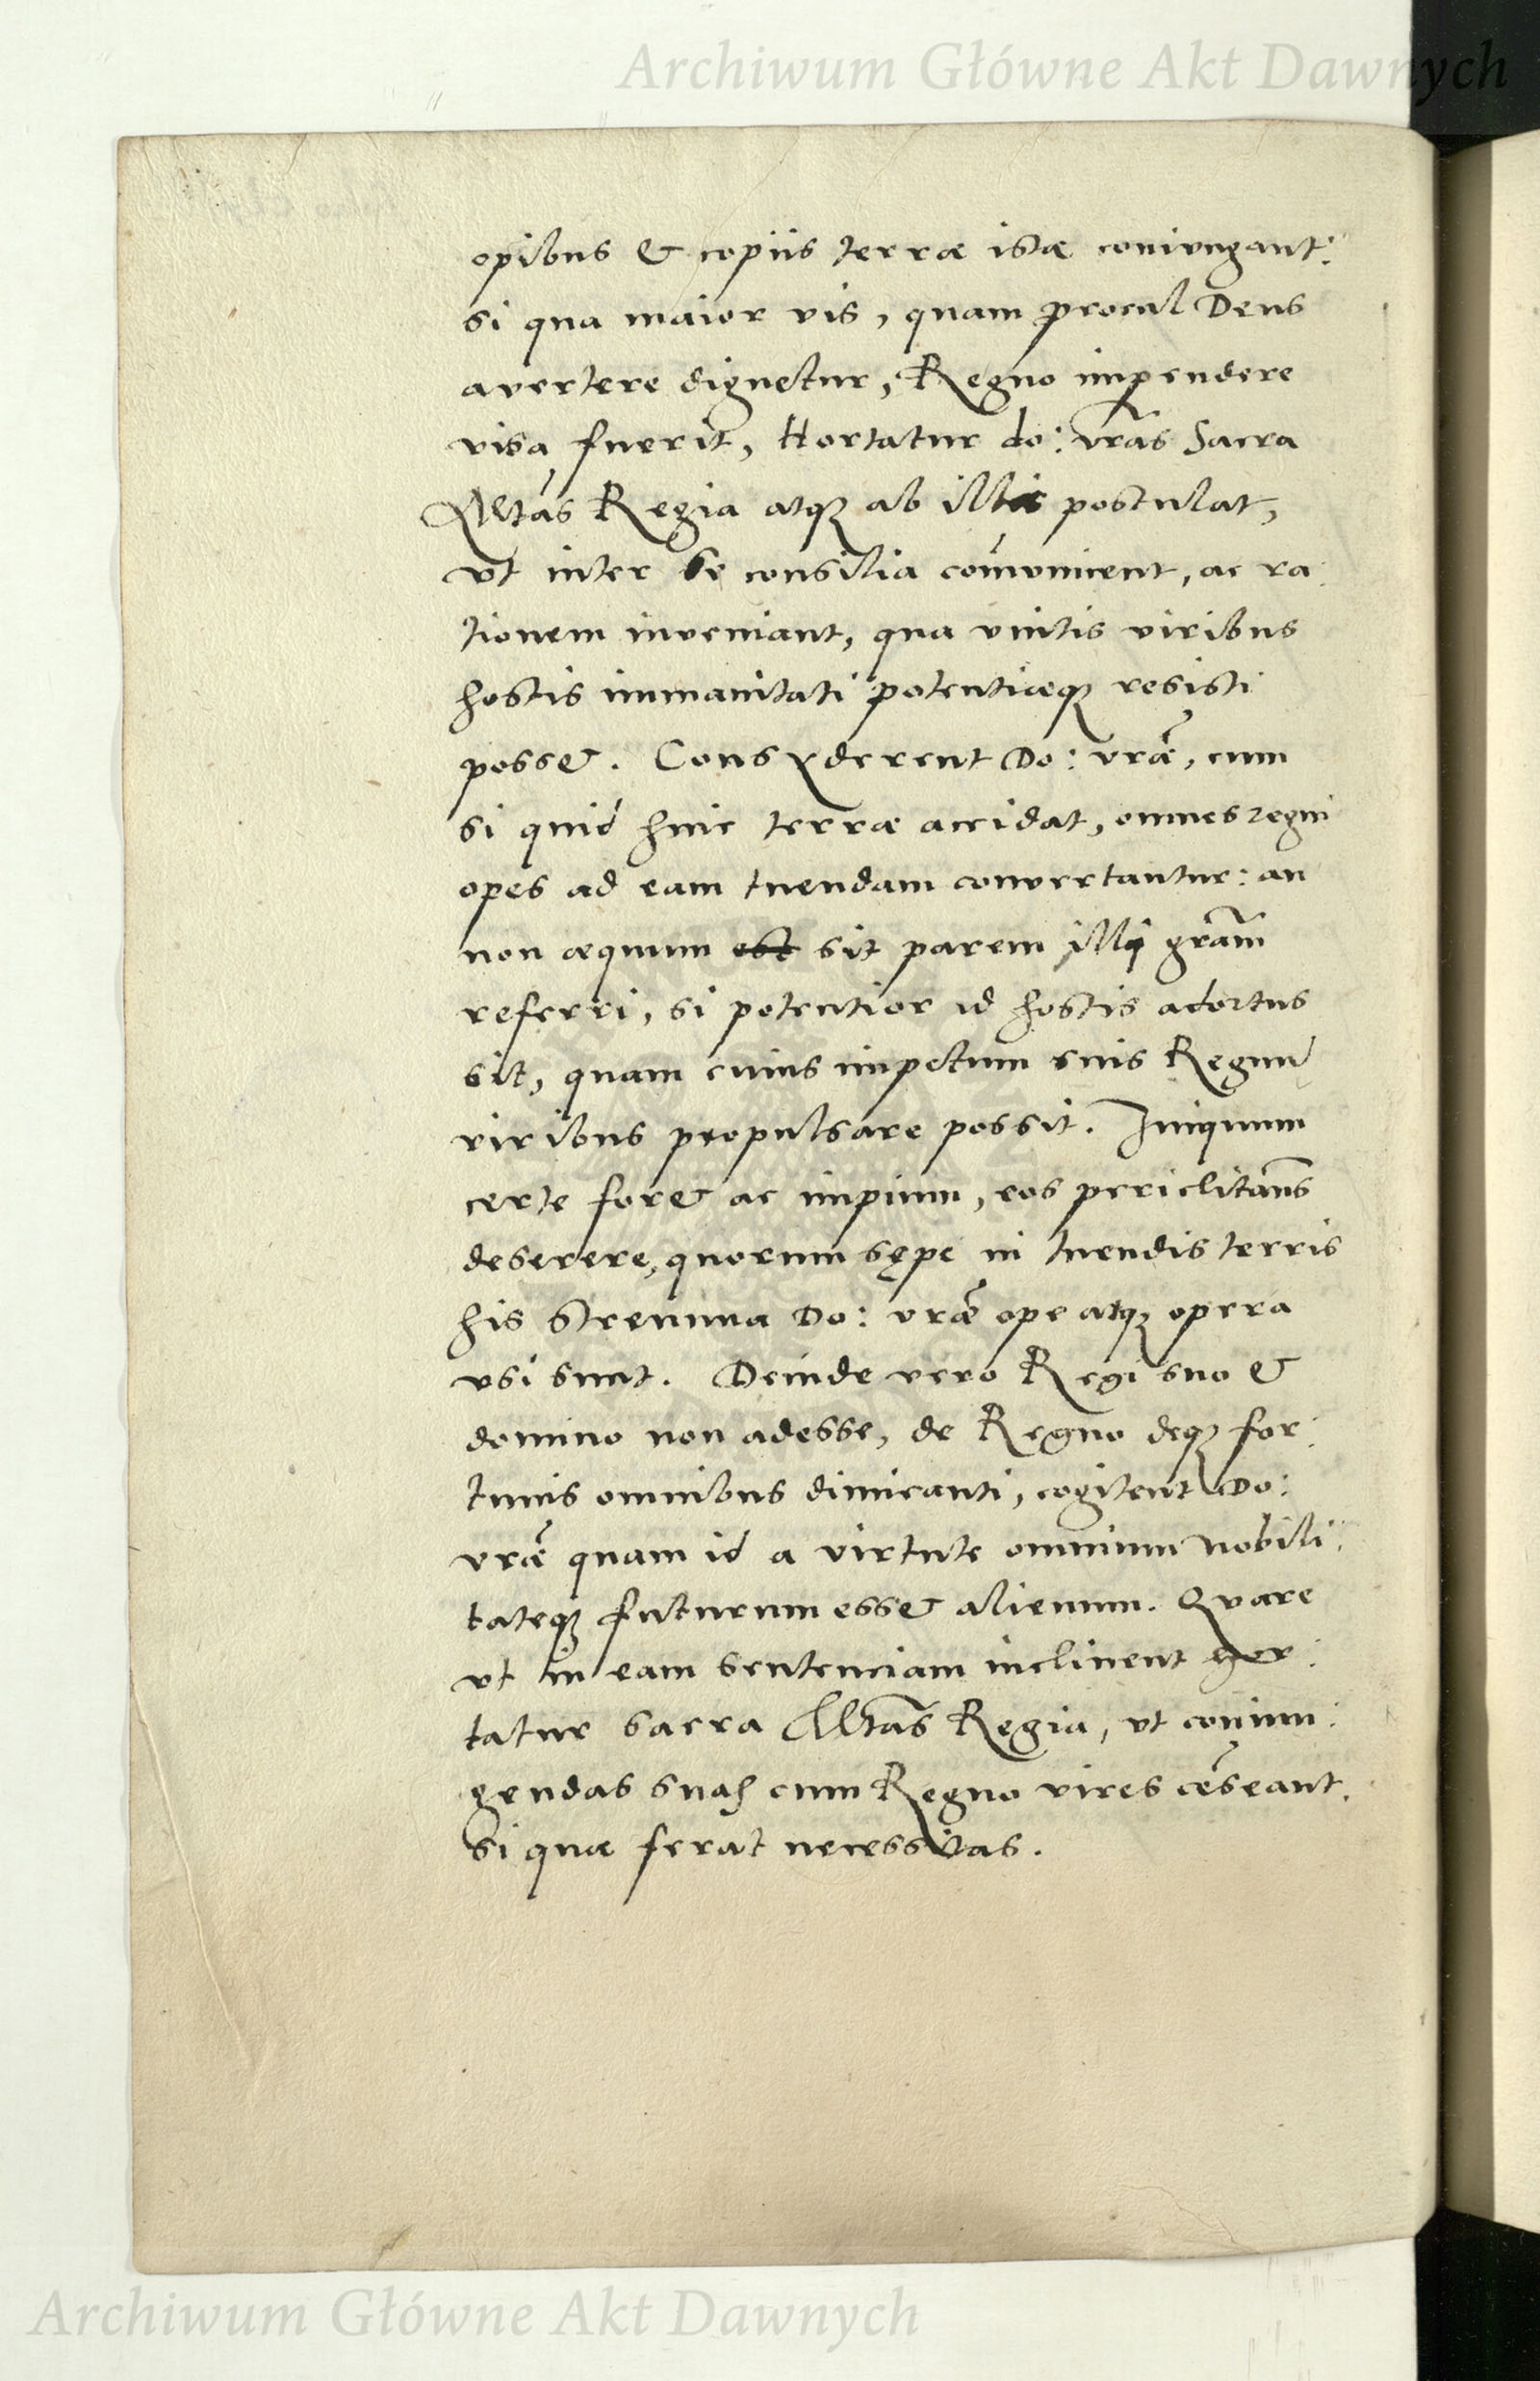 Archiwum Główne Akt Dawnych
opibus & copiis terræ istæ coniungant:
si qua maior vis, quam procul Deus
avertere dignetur, Regno impendere
visa fuerit, Hortatur do: vrãs Sacra
Mtãs Regia atqꝫ ab illis postulat,
vt inter se consilia com̃unicent, ac ra:
tionem inveniant, qua unitis viribus
hostis immanitati potentiæqꝫ resisti
posse. Consyderent Do: vræ̃, cum
si quid huic terræ accidat, omnes regni
opes ad eam tuendam convertantur: an
non æquum est sit parem illi grãm
referri, si potentior id hostis adortus
sit, quam cuius impetum suis Regnũ
viribus propulsare possit. Iniquum
certe fore ac impium, eos periclitãns
deserere, quorum sępe in tuendis terris
his strennua Do: vræ̃ ope atqꝫ opera
vsi sunt. Deinde vero Regi suo &
domino non adesse, de Regno deqꝫ for:
tunis omnibus dimicanti, cogitent Do:
vræ̃ quam id a virtute omnium nobili:
tateqꝫ futurum esse alienum. Quare
vt in eam sentenciam inclinent hor:
tatur sacra Mtãs Regia, vt coniun:
gendas suas cum Regno vires cẽseant.
si quæ ferat necessitas.
Archiwum Główne Akt Dawnych